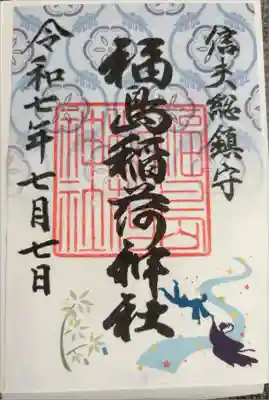 信夫総鎮守
福島稲荷神社
令和七年七月七日
福島稲荷神社